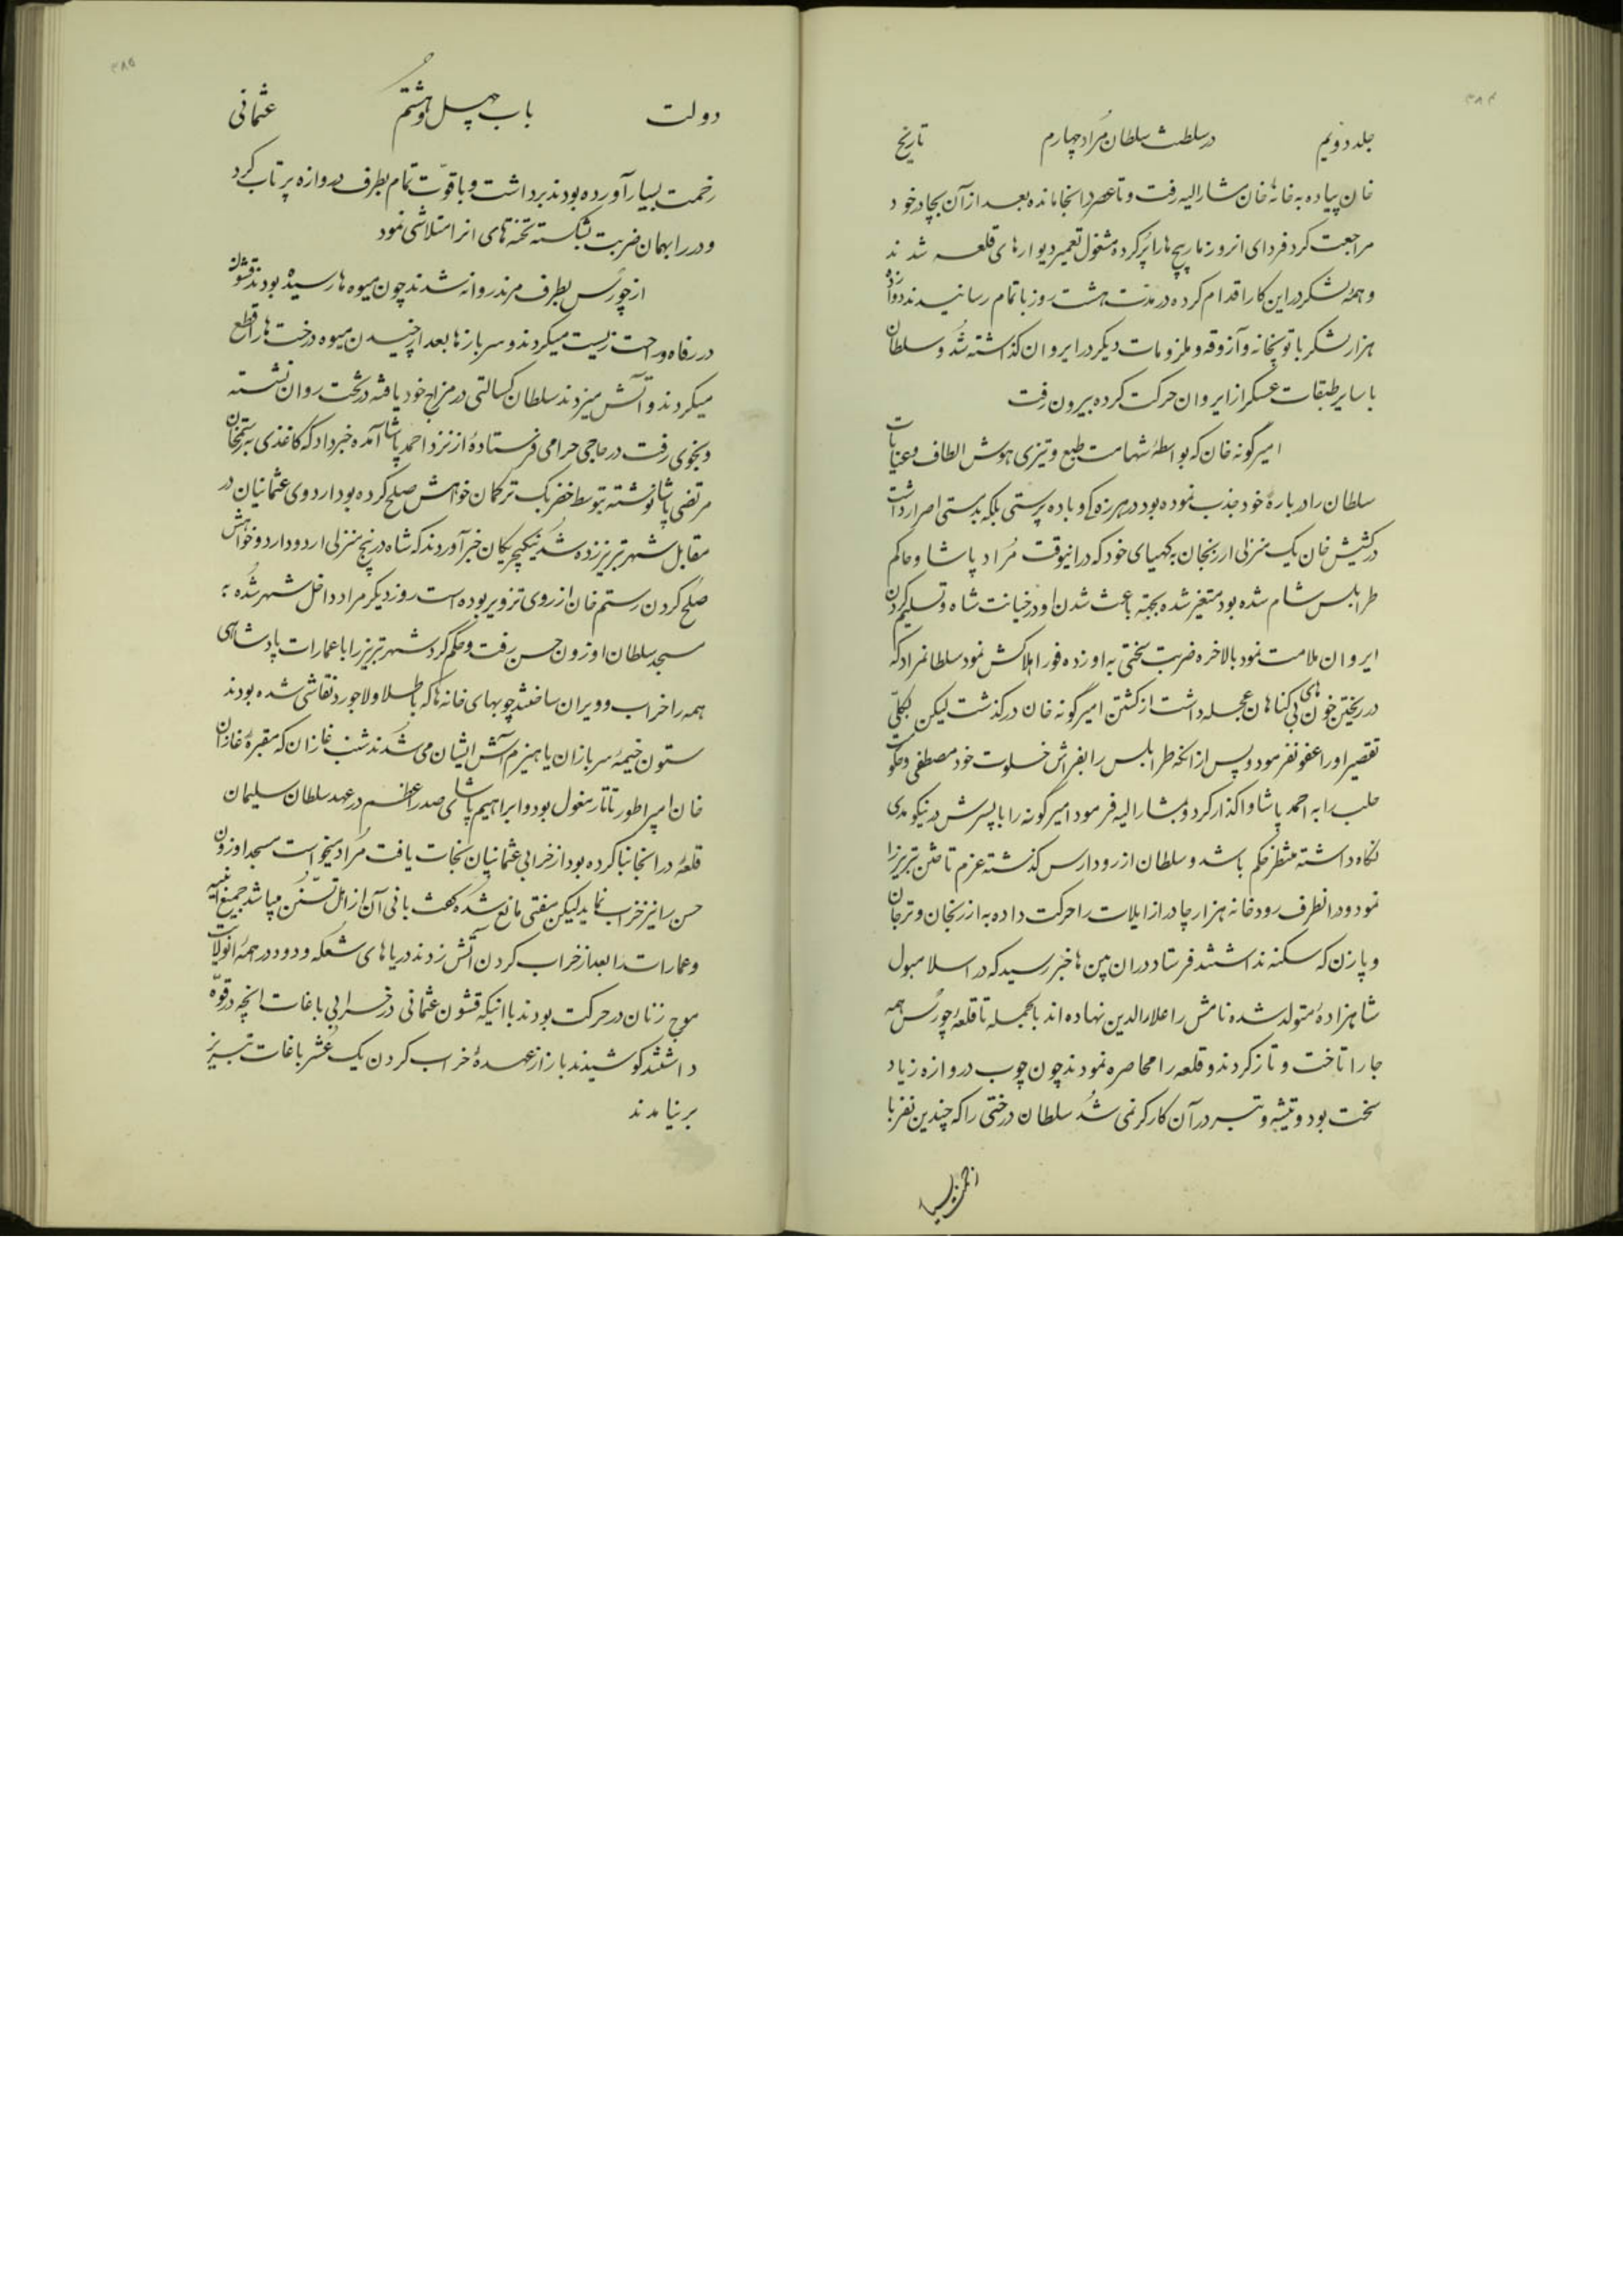 ۳۸۴
جلد دویم در سلطنت سلطان مراد چهارم تاریخ
خان پیاده به خانهٔ خان مشارالیه رفت و تا عصر در انجا مانده بعد از آن بچادر خود
مراجعت کرد فردای انروز مارپیچ ها را پر کرده مشغول تعمیر دیوارهای قلعه شدند
و همهٔ لشکر در این کار اقدام کرده در مدت هشت روز باتمام رسانیدند دوازده
هزار لشکر با توپخانه و آزوقه و ملزومات دیکر در ایروان کذاشته شد و سلطان
با سایر طبقات عسکر از ایروان حرکت کرده بیرون رفت
امیرگونه خان که بواسطهٔ شهامت طبع و تیزی هوش الطاف و عنایات
سلطان را در بارهٔ خود جذب نموده بود در هرزه کی و باده پرستی بلکه بدمستی اصرار داشت
در کشیش خان یک منزلی ارزنجان به کهیای خود که در انیوقت مراد پاشا و حاکم
طرابلس شام شده بود متغیر شده بجهة باعث شدن او در خیانت شاه و تسلیم کردن
ایروان ملامت نمود بالاخره ضربت سختی به او زده فورا هلاکش نمود سلطانمراد که
در ریختن خون های بی کناهان عجله داشت از کشتن امیرگونه خان در کذشت لیکن بکلی
تقصیر او را عفو نفرمود و پس از انکه طرابلس را بفراش خلوت خود مصطفی و حکومت
حلب را به احمد پاشا واکذار کرد و مشارالیه فرمود امیرگونه را با پسرش در نیکومدی
نکاه داشته منتظر حکم باشد و سلطان از رود ارس کذشته عزم تاختن تبریز را
نمود و در انطرف رودخانه هزار چادر از ایلات را حرکت داده به ارزنجان و ترجان
و پازن که سکنه نداشتند فرستاد در ان بین ها خبر رسید که در اسلامبول
شاهزادهٔ متولد شده نامش را علاءالدین نهاده اند بالجمله تا قلعهٔ چورس همه
جا را تاخت و تاز کردند و قلعه را محاصره نمودند چون چوب دروازه زیاد
سخت بود و تیشه و تبر در آن کارکر نمی شد سلطان درختی را که چندین نفر با
۳۸۵
دولت باب چهل و هشتم عثمانی
زحمت بسیار آورده بودند برداشت و با قوت تمام بطرف دروازه پرتاب کرد
و در را بهمان ضربت شکسته تخته های انرا متلاشی نمود
از چورس بطرف مرند روانه شدند چون میوه ها رسیده بودند قشون
در رفاه و راحت زیست میکردند و سربازها بعد از چیدن میوه درخت ها را قطع
میکردند و آتش میزدند سلطان کسالتی در مزاج خود یافته در تخت روان نشسته
و بخوی رفت در حاجی حرامی فرستادهٔ از نزد احمد پاشا آمده خبر داد که کاغذی به رستمخان
مرتضی پاشا نوشته بتوسط خضر بک ترکمان خواهش صلح کرده بود اردوی عثمانیان در
مقابل شهر تبریز زده شد ینکیچریکان خبر آوردند که شاه در پنج منزلی اردو دارد و خواهش
صلح کردن رستم خان از روی تزویر بوده است روز دیکر مراد داخل شهر شده به
مسجد سلطان اوزون حسن رفت و حکم کرد شهر تبریز را با عمارات پادشاهی
همه را خراب و ویران ساختند چوبهای خانه ها که با طلا و لاجورد نقاشی شده بودند
ستون خیمهٔ سربازان یا هیزم آتش ایشان می شدند شنب غازان که مقبرهٔ غازان
خان امپراطور تاتار مغول بود و ابراهیم پاشای صدر اعظم در عهد سلطان سلیمان
قلعهٔ در انجا بنا کرده بود از خرابی عثمانیان نجات یافت مراد میخواست مسجد اوزون
حسن را نیز خراب نماید لیکن مفتی مانع شده گفت بانی آن از اهل تسنن میباشد جمیع ابنیه
و عمارات را بعد از خراب کردن آتش زدند دریاهای شعله و دود در همهٔ انولایت
موج زنان در حرکت بودند با انیکه قشون عثمانی در خرابی باغات انچه در قوه
داشتند کوشیدند باز از عهدهٔ خراب کردن یک عشر باغات تبریز
بر نیامدند